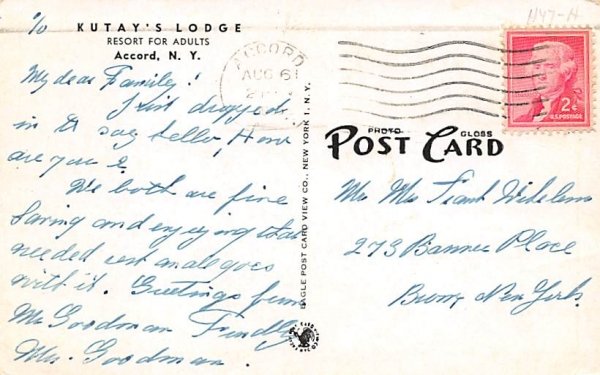 c/o KUTAY'S LODGE
RESORT FOR ADULTS
Accord, N. Y.
H47-H
ACCORD
AUG 6
2¢
U.S. POSTAGE
My dear Family!
Just dropped
in to say hello, How
are you?
We both are fine
and enjoying that
needed rest and goes
with it. Greetings from
Mr Goodman Friendly
Mrs. Goodman.
EAGLE POST CARD VIEW CO., NEW YORK 1, N.Y.
PHOTO GLOSS
POST CARD
Mr Mrs Frank
273 Place
Bronx New York